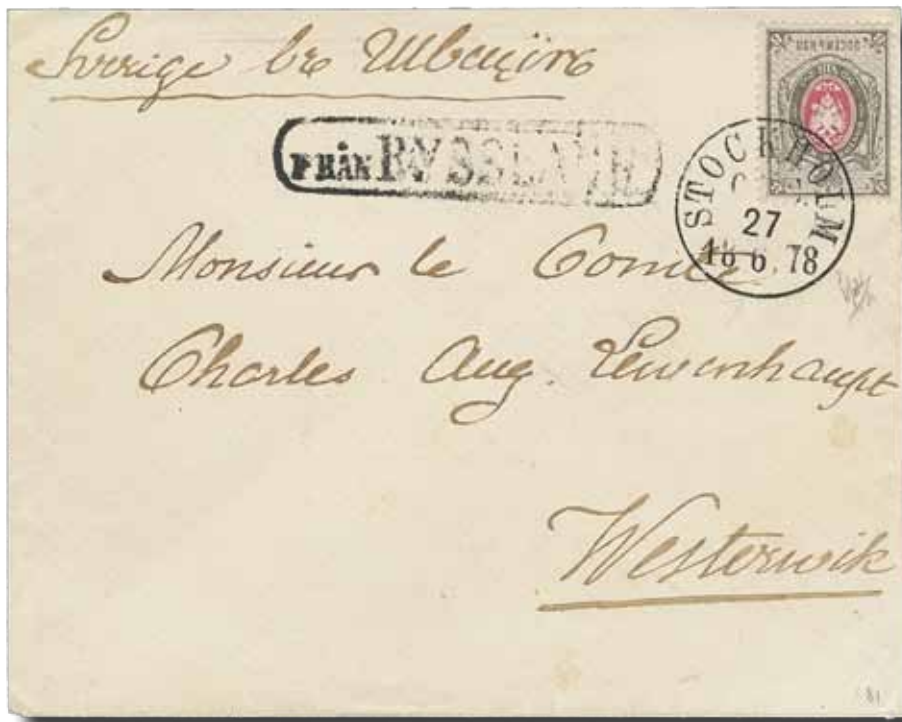 Sverige въ Швецiю
FRÅN RYSSLAND
STOCKHOLM
27
18 6. 78
Monsieur le Comte
Charles Aug. Lewenhaupt
Westerwik